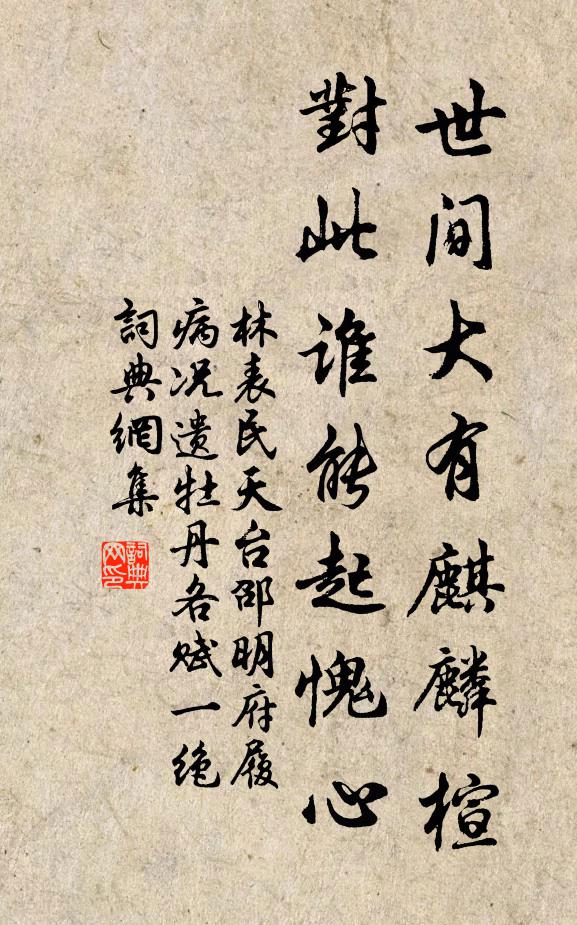 世间大有麒麟楦
對此谁能起愧心
林表民天台邵明府履
病况遗牡丹各赋一绝
詞典網集
詞典网印